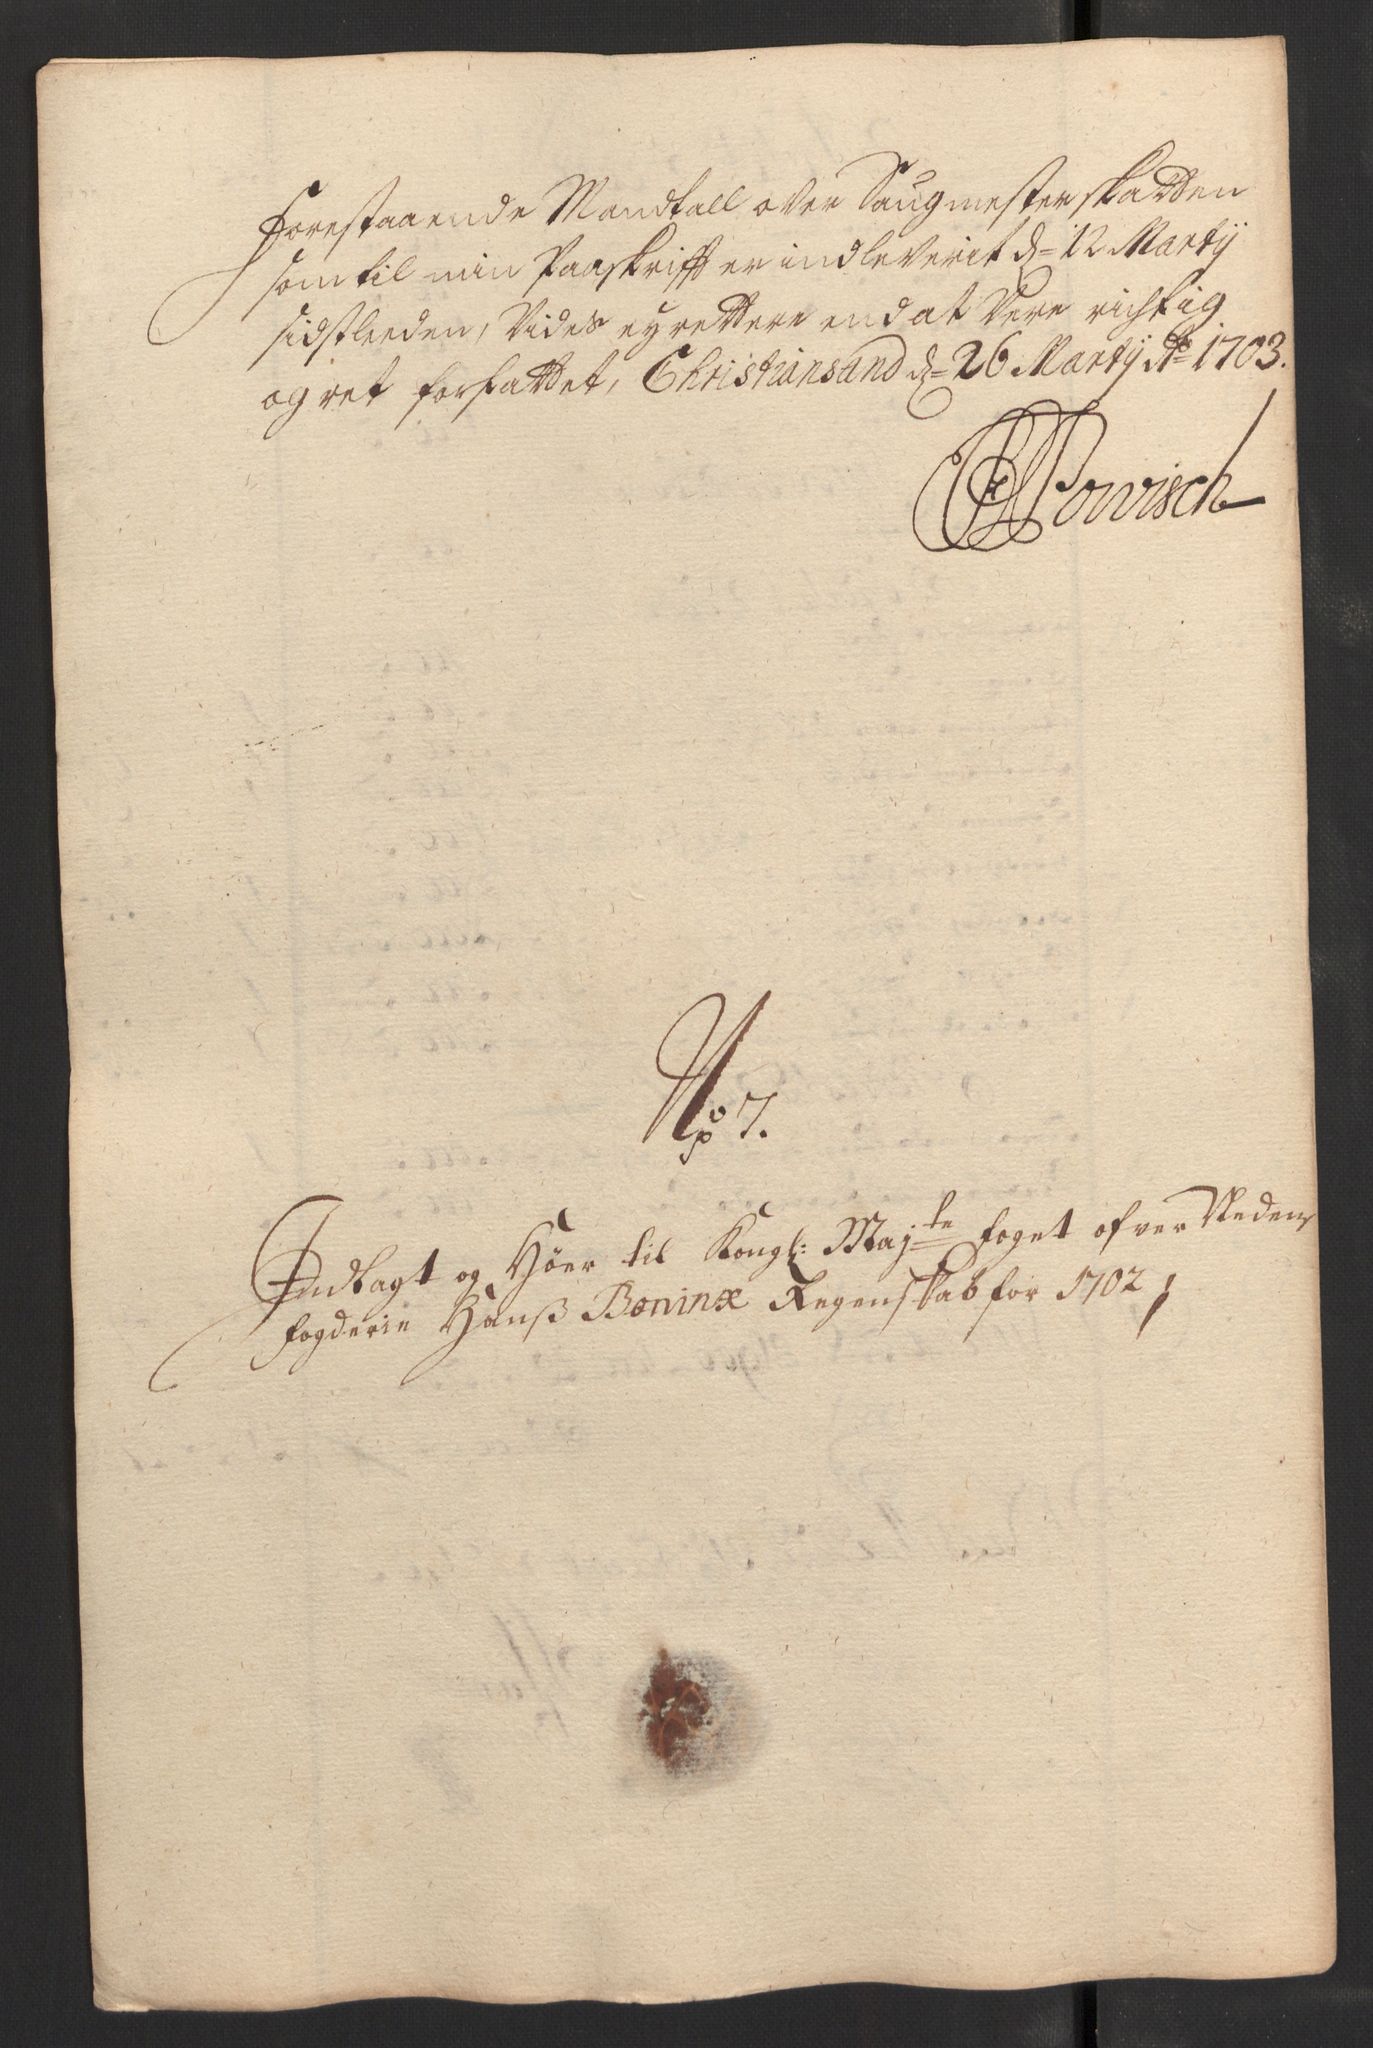 Forestaaende Mandtall over Saugmesterskatten
som til min Paaskrifft er indleverit d= 12 Martÿ
sidstleeden, Vides eÿ rettere end at Vere richtig
og ret forfattet, Christiansand d= 26 Martÿ Ao 1703.
Powisch
No 7.
Indlagt og Hörer til Kongl: Mayts foget ofver Nedenes
fogderie Hanß Boninx Regenskab for 1702